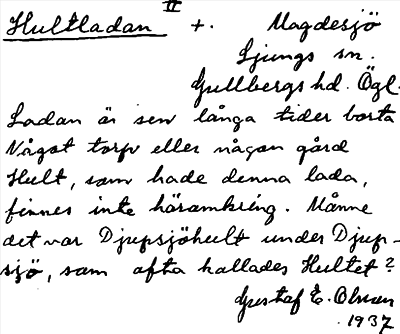 II
Hultladan +. Magdesjö
Ljungs sn.
Gullbergs hd. Ögl.
Ladan är sen långa tider borta
Något torp eller någon gård
Hult, som hade denna lada,
finnes inte häromkring. Månne
det var Djupsjöhult under Djup-
sjö, som ofta kallades Hultet?
Gustaf E. Olsson
1937